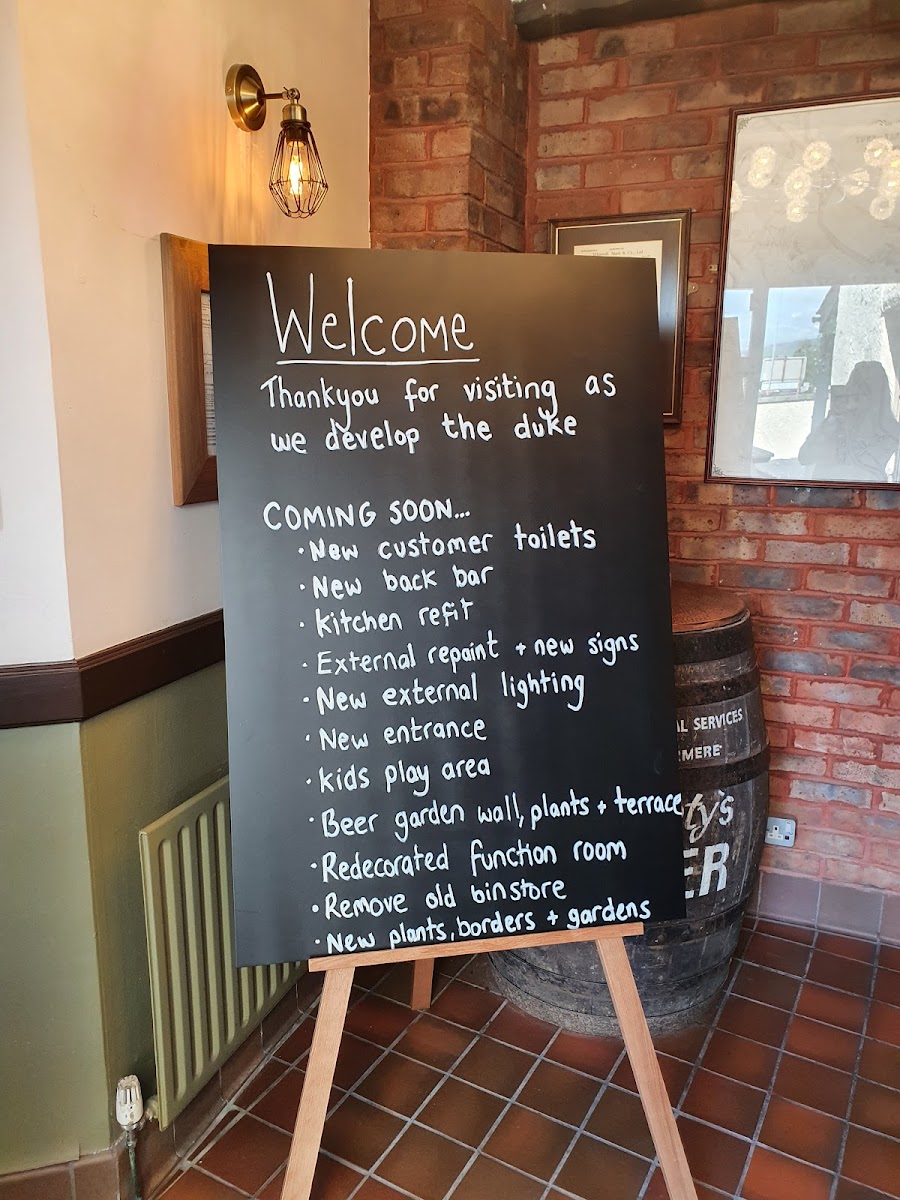 Welcome
Thankyou for visiting as
we develop the duke
COMING SOON...
· New customer toilets
· New back bar
· Kitchen refit
· External repaint + new signs
· New external lighting
· New entrance
· Kids play area
· Beer garden wall, plants + terrace
· Redecorated function room
· Remove old binstore
· New plants, borders + gardens
AL SERVICES
RMERE
ty's
ER